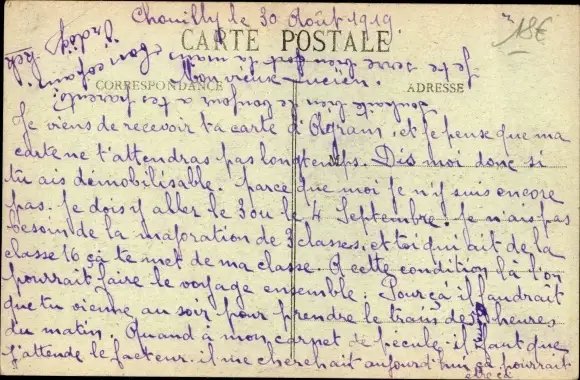 Chouilly le 30 Août 1919
18€
CARTE POSTALE
CORRESPONDANCE
ADRESSE
Mon vieux Lucien.
Je viens de recevoir ta carte d'Agram, et je pense que ma
carte ne t'attendras pas longtemps. Dis moi donc si
tu ais démobilisable. parce que moi je n'y suis encore
pas. Je dois y aller le 3 ou le 4 Septembre. Je n'ais pas
besoin de la majoration de 3 classes. et toi qui ait de la
classe 16 ça te met de ma classe. A cette condition là l'on
pourrait faire le voyage ensemble. Pour ça il faudrait
que tu vienne au soir pour prendre le train de heures
du matin. Quand à mon carnet de pécule. il faut que
j'attende le facteur. il me cherchait aujourd'hui ça pourrait
être ça
Souhaite bien le bonjour à tes parents
Je te serre bien fort la main
bon copain